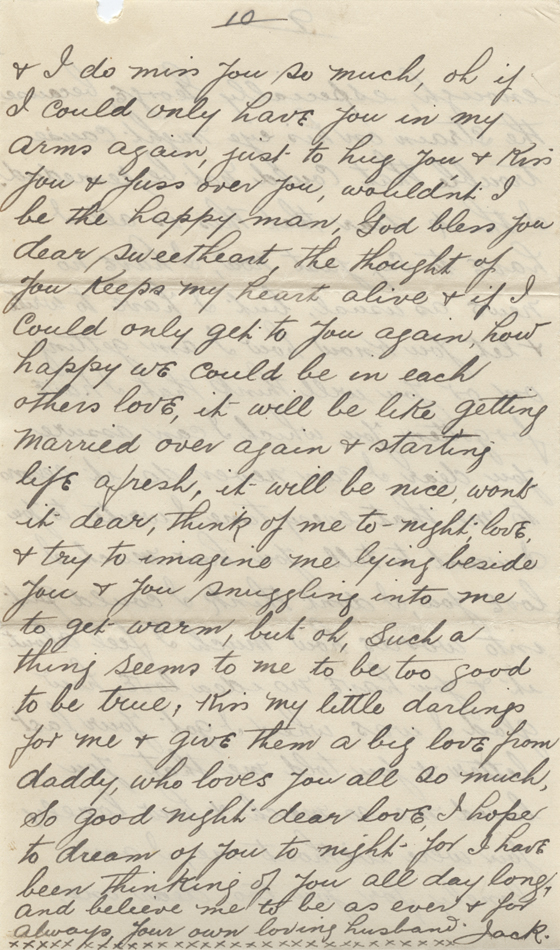 10
& I do miss you so much, oh if
I could only have you in my
arms again, just to hug you & Kiss
you & fuss over you, wouldn't I
be the happy man, God bless you
dear sweetheart, the thought of
you keeps my heart alive & if I
could only get to you again, how
happy we could be in each
others love, it will be like getting
married over again & starting
life afresh, it will be nice, wont
it dear, think of me to-night, love,
& try to imagine me lying beside
you & you snuggling into me
to get warm, but oh, such a
thing seems to me to be too good
to be true, Kiss my little darlings
for me & give them a big love from
daddy, who loves you all so much,
So good night dear love, I hope
to dream of you to night for I have
been thinking of you all day long,
and believe me to be as ever & for
always, your own loving husband. Jack.
xxxxxxxxxxxxxxxxxxxxxxxxxxxxxxxxxxxx